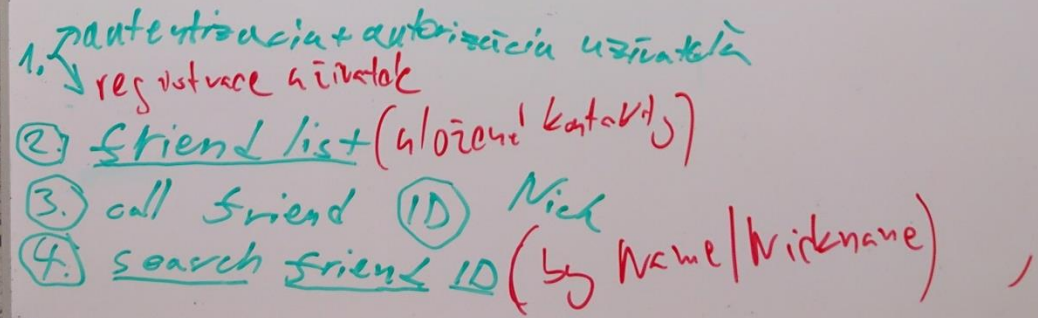 1. autentizacia + autorizácia uživatelů
registrace uživatele
2. friend list (uložené kontakty)
3. call friend ID Nick
4. search friend ID (by Name/Nickname)